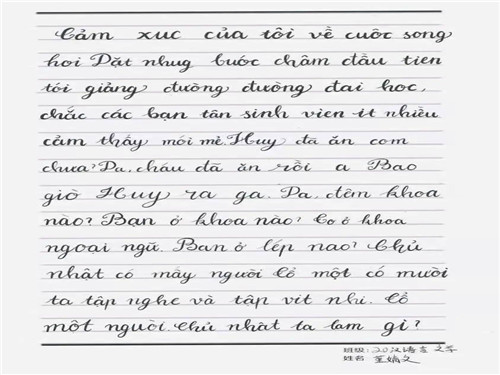 Cảm xuc của tôi về cuôc song
hơi Dặt nhug bước châm đầu tien
tới giảng đường đường đai hoc,
chắc các bạn tân sinh vien it nhiều
cảm thấy mói mẻ. Huy đã ăn com
chưa? Da, cháu đã ăn rồi a Bao
giờ Huy ra ga. Da, đêm khoa
nào? Bạn ở khoa nào? Co ở khoa
ngoại ngũ. Ban ở lép nao? Chủ
nhật có mấy người Cổ một có mười
ta tập nghe và tập vit nhi. Cổ
một nguời. Chủ nhat ta lam gi?
班级: 20汉语言文学
姓名